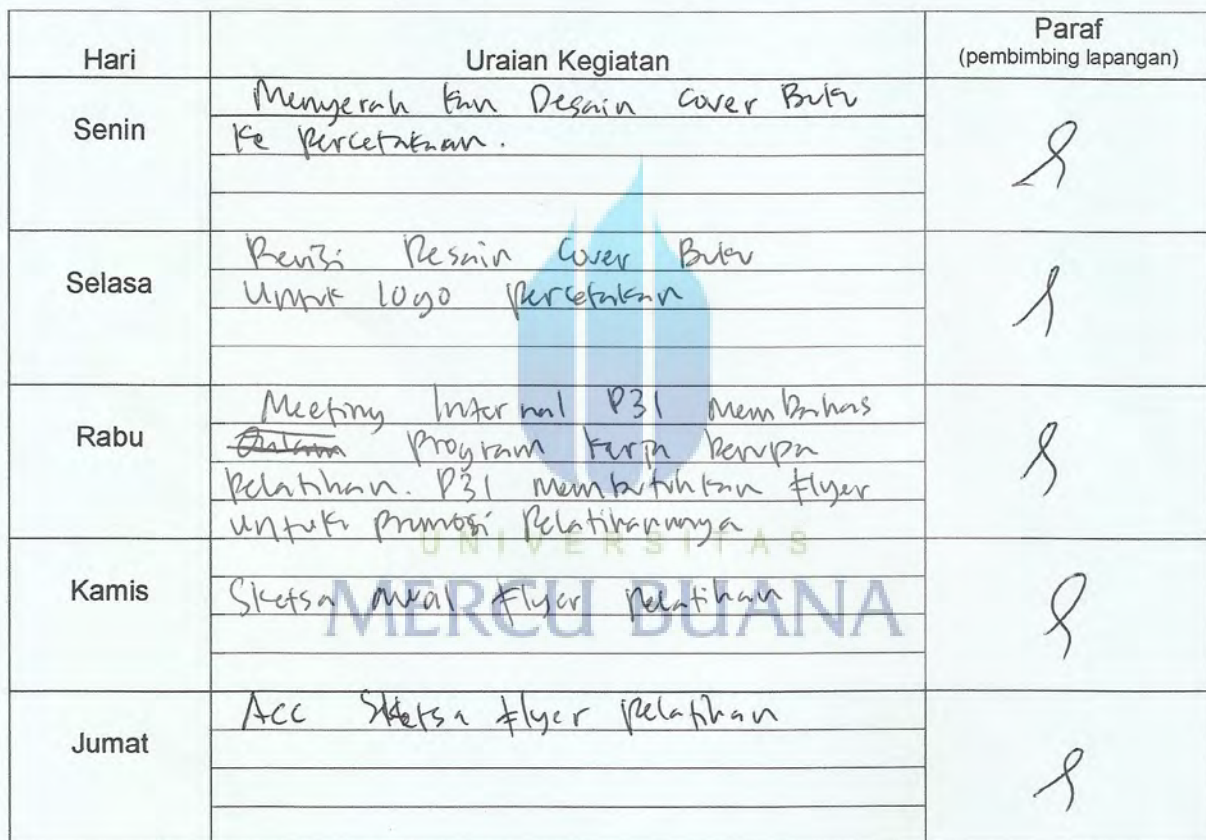 Hari Uraian Kegiatan Paraf
(pembimbing lapangan)
Senin
Menyerah kan Desain Cover Buku
ke Percetakaan.
Selasa
Revisi Desain Cover Buku
Untuk logo percetakan
Rabu
Meeting Internal P3I Membahas
program kerja berupa
pelatihan. P3I membutuhkan flyer
untuk promosi pelatihannnya
UNIVERSITAS
Kamis
Sketsa awal flyer pelatihan
MERCU BUANA
Jumat
Acc Sketsa flyer pelatihan